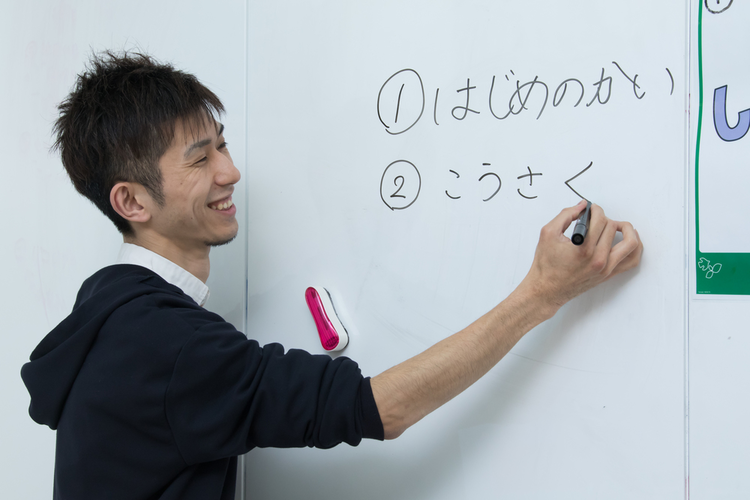 ①はじめのかい
②こうさく
し